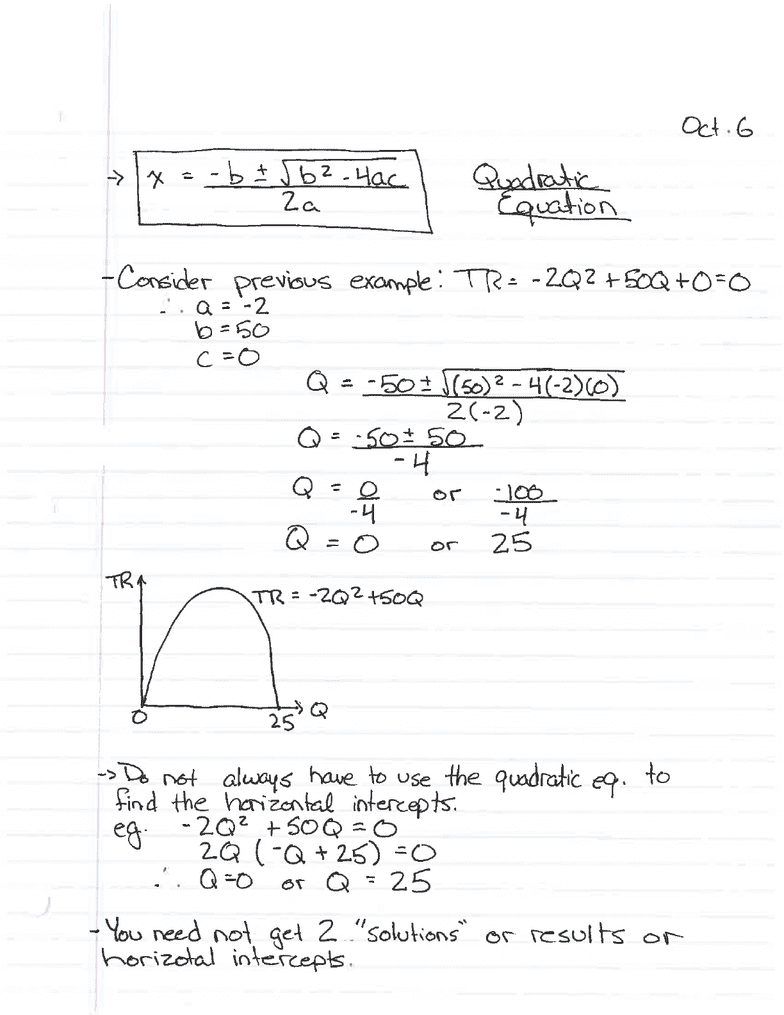 Oct. 6
→ x = -b ± √b² - 4ac / 2a
Quadratic
Equation
- Consider previous example: TR = -2Q² + 50Q + 0 = 0
∴ a = -2
b = 50
c = 0
Q = -50 ± √(50)² - 4(-2)(0) / 2(-2)
Q = -50 ± 50 / -4
Q = 0 / -4 or -100 / -4
Q = 0 or 25
TR
TR = -2Q² + 50Q
0 25 Q
-> Do not always have to use the quadratic eq. to
find the horizontal intercepts.
eg. -2Q² + 50Q = 0
2Q (-Q + 25) = 0
∴ Q=0 or Q = 25
- You need not get 2 "solutions" or results or
horizotal intercepts.